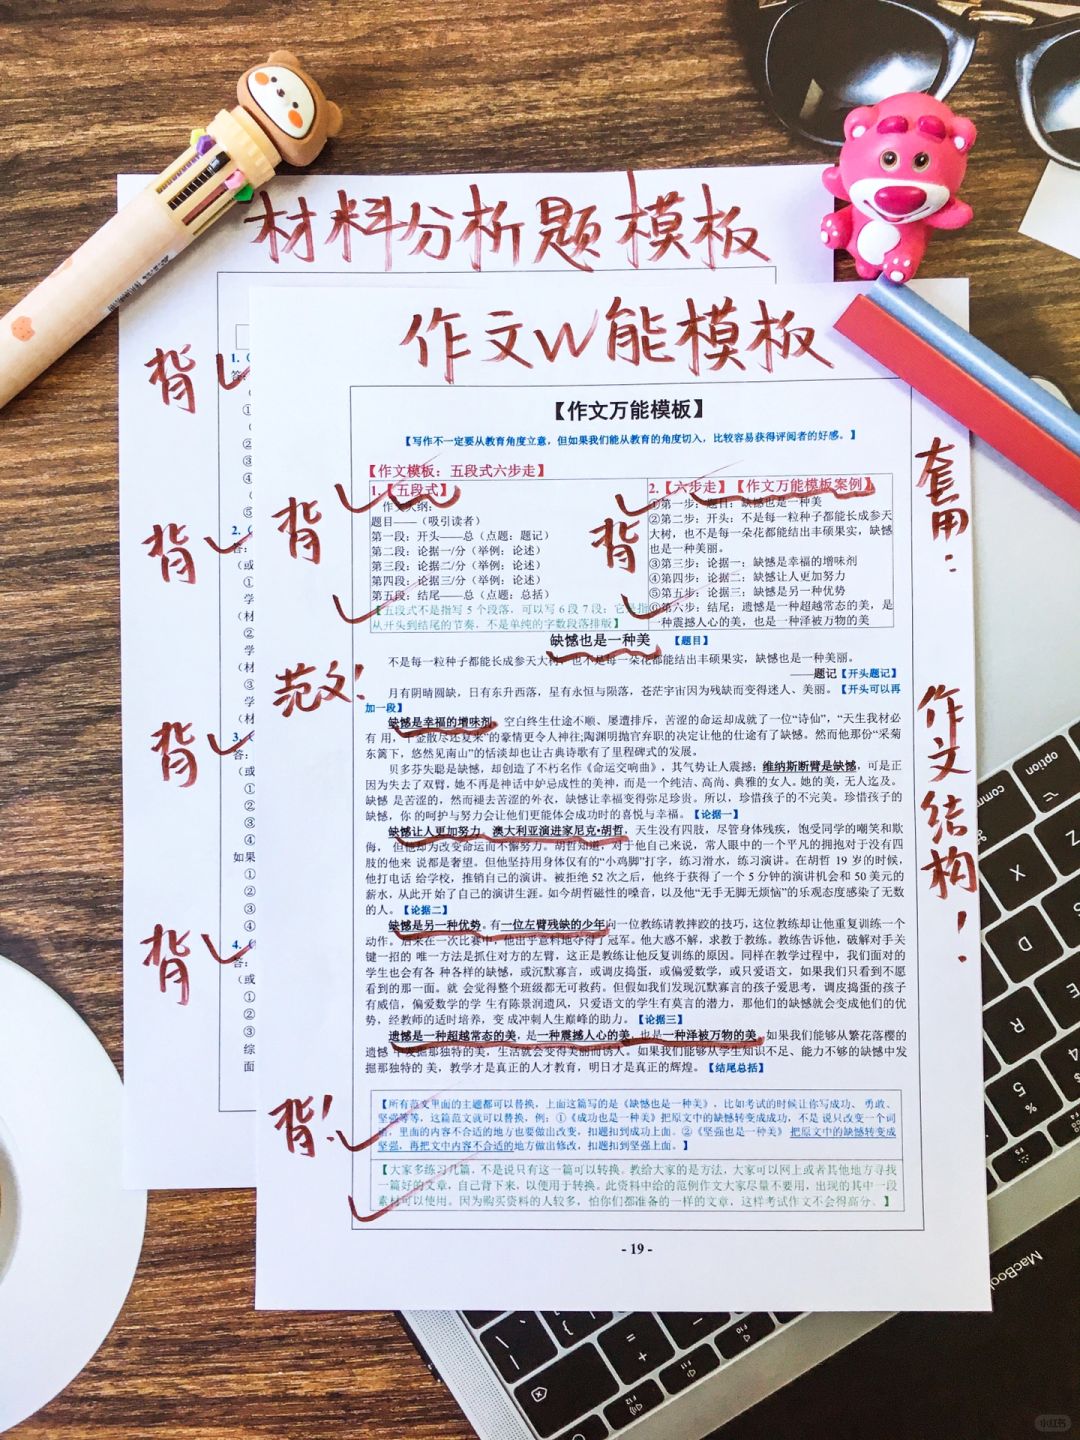 材料分析题模板
作文W能模板
背
背
背
背
1.
2.
3.
4.
【作文万能模板】
【写作不一定要从教育角度立意，但如果我们能从教育的角度切入，比较容易获得评阅者的好感。】
【作文模板：五段式六步走】
1.【五段式】
作文大纲：
题目——（吸引读者）
第一段：开头——总（点题：题记）
第二段：论据一/分（举例：论述）
第三段：论据二/分（举例：论述）
第四段：论据三/分（举例：论述）
第五段：结尾——总（点题：总括）
【五段式不是指写5个段落，可以写6段7段；它是指
从开头到结尾的节奏，不是单纯的字数段落排版】
背
2.【六步走】【作文万能模板案例】
①第一步：题目：缺憾也是一种美
②第二步：开头：不是每一粒种子都能长成参天
大树，也不是每一朵花都能结出丰硕果实，缺憾
也是一种美丽。
③第三步：论据一：缺憾是幸福的增味剂
④第四步：论据二：缺憾让人更加努力
⑤第五步：论据三：缺憾是另一种优势
⑥第六步：结尾：遗憾是一种超越常态的美，是
一种震撼人心的美，也是一种泽被万物的美
背
套用：
作文结构！
范文！
缺憾也是一种美 【题目】
不是每一粒种子都能长成参天大树，也不是每一朵花都能结出丰硕果实，缺憾也是一种美丽。
——题记【开头题记】
月有阴晴圆缺，日有东升西落，星有永恒与陨落，苍茫宇宙因为残缺而变得迷人、美丽。【开头可以再
加一段】
缺憾是幸福的增味剂。空白终生仕途不顺、屡遭排斥，苦涩的命运却成就了一位“诗仙”，“天生我材必
有 用，千金散尽还复来”的豪情更令人神往;陶渊明抛官弃职的决定让他的仕途有了缺憾。然而他那份“采菊
东篱下，悠然见南山”的恬淡却也让古典诗歌有了里程碑式的发展。
贝多芬失聪是缺憾，却创造了不朽名作《命运交响曲》，其气势让人震撼；维纳斯断臂是缺憾，可是正
因为失去了双臂，她不再是神话中妒忌成性的美神，而是一个纯洁、高尚、典雅的女人。她的美，无人迄及。
缺憾 是苦涩的，然而褪去苦涩的外衣，缺憾让幸福变得弥足珍贵。所以，珍惜孩子的不完美。珍惜孩子的
缺憾，你 的呵护与努力会让他们更能体会成功时的喜悦与幸福。【论据一】
缺憾让人更加努力。澳大利亚演进家尼克•胡哲，天生没有四肢，尽管身体残疾，饱受同学的嘲笑和欺
侮， 但他却为改变命运而不懈努力。胡哲知道，对于他自己来说，常人眼中的一个平凡的拥抱对于没有四
肢的他来 说都是奢望。但他坚持用身体仅有的“小鸡脚”打字，练习滑水，练习演讲。在胡哲 19 岁的时候，
他打电话 给学校，推销自己的演讲。被拒绝 52 次之后，他终于获得了一个 5 分钟的演讲机会和 50 美元的
薪水，从此开 始了自己的演讲生涯。如今胡哲磁性的嗓音，以及他“无手无脚无烦恼”的乐观态度感染了无数
的人。【论据二】
缺憾是另一种优势。有一位左臂残缺的少年向一位教练请教摔跤的技巧，这位教练却让他重复训练一个
动作。后来在一次比赛中，他出乎意料地夺得了冠军。他大惑不解，求教于教练。教练告诉他，破解对手关
键一招的 唯一方法是抓住对方的左臂，这正是教练让他反复训练的原因。同样在教学过程中，我们面对的
学生也会有各 种各样的缺憾，或沉默寡言，或调皮捣蛋，或偏爱数学，或只爱语文，如果我们只看到不愿
看到的那一面。就 会觉得整个班级都无可救药。但假如我们发现沉默寡言的孩子爱思考，调皮捣蛋的孩子
有威信，偏爱数学的学 生有陈景润遗风，只爱语文的学生有莫言的潜力，那他们的缺憾就会变成他们的优
势，经教师的适时培养，变 成冲刺人生巅峰的助力。【论据三】
遗憾是一种超越常态的美，是一种震撼人心的美，也是一种泽被万物的美。如果我们能够从繁花落樱的
遗憾 中发掘那独特的美，生活就会变得美丽而诱人。如果我们能够从学生知识不足、能力不够的缺憾中发
掘那独特的 美，教学才是真正的人才教育，明日才是真正的辉煌。【结尾总括】
背！
【所有范文里面的主题都可以替换，上面这篇写的是《缺憾也是一种美》，比如考试的时候让你写成功、勇敢、
坚强等等，这篇范文就可以替换，例：①《成功也是一种美》把原文中的缺憾转变成成功，不是说只改变一个词
语，里面的内容不合适的地方也要做出改变，扣题扣到成功上面。②《坚强也是一种美》 把原文中的缺憾转变成
坚强，再把文中内容不合适的地方做出修改，扣题扣到坚强上面。】
【大家多练习几篇，不是说只有这一篇可以转换。教给大家的是方法，大家可以网上或者其他地方寻找
一篇好的文章，自己背下来，以便用于转换。此资料中给的范例作文大家尽量不要用，出现的其中一段
素材可以使用。因为购买资料的人较多，怕你们都准备的一样的文章，这样考试作文不会得高分、】
- 19 -
MacBook
小红书